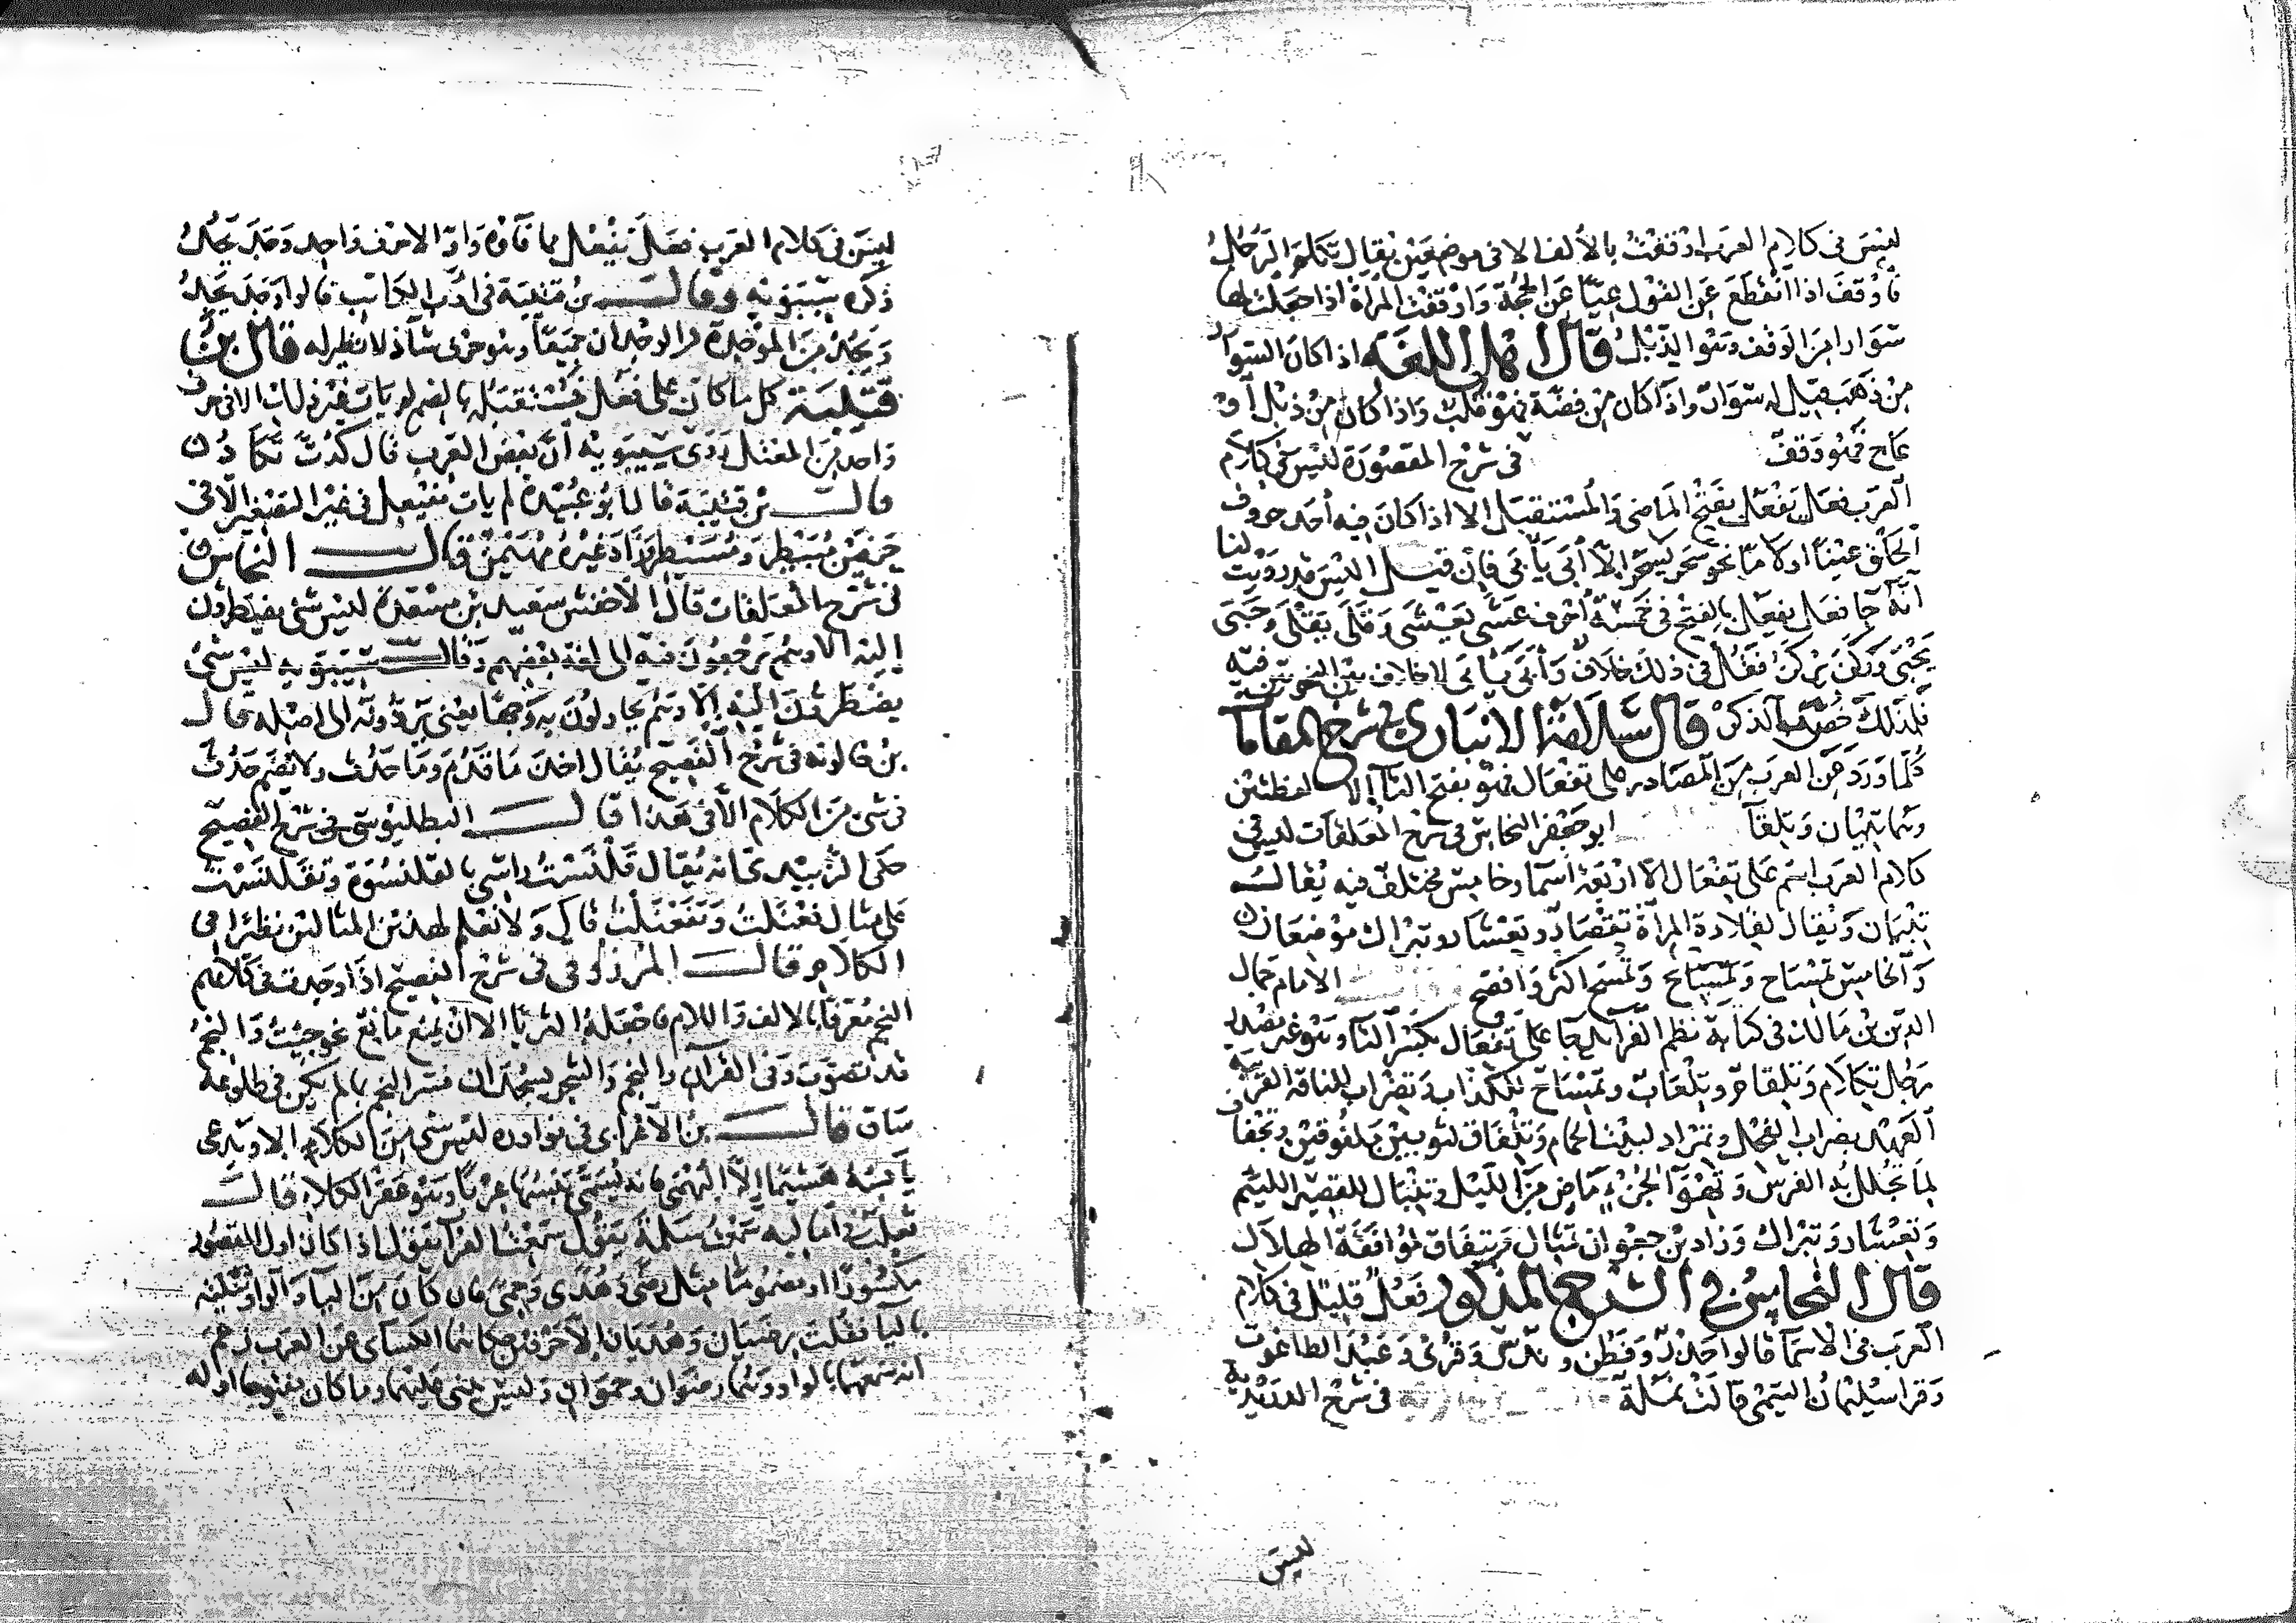 ليس في كلام العرب اوقفت بالألف الا في موضعين يقال تكلم الرجل
فأوقف اذا انقطع عن القول عيّا عن الحجة واوقفت المرأة اذا جعلت لها
سوارا من الوقف وهو الذبل قال اهل اللغة اذا كان السوار
من ذهب قيل له سوار واذا كان من فضة فهو قلب واذا كان من ذبل أو
عاج فهو وقف في شرح المقصورة ليس في كلام
العرب فعل يفعل بفتح الماضي والمستقبل الا اذا كان فيه أحد حروف
الحلق عينا او لاما نحو سحر يسحر الا أبى يأبى فإن قيل اليس قد رويت لنا
انه جا فعل يفعل بالفتح في خمسة أحرف عسى يعسى وقلى يقلى وجبى
يجبى وركن يركن فقل في ذلك خلاف وأبى يأبى لا خلاف بين النحويين فيه
فلذلك خصصته بالذكر قال سلامة الانباري في شرح المقامات
كلما ورد عن العرب من المصادر على تفعال فهو بفتح التا الا لفظتين
وهما تبيان وتلقا ابو جعفر النحاس في شرح المعلقات ليس في
كلام العرب اسم على تفعال الا اربعة اسما وخامس مختلف فيه يقال
تبيان ويقال لقلادة المرأة تقصار وتعشار وتبراك موضعان
والخامس تمساح وتمسح وتمسح اكثر وافصح الامام جمال
الدين بن مالك في كتابه نظم الفرائد جا على تفعال بكسر التا وهو غير مصدر
رجل تكلام وتلقام وتلعاب وتمساح للكذاب وتضراب للناقة القريبة
العهد بضراب الفحل وتمراد لبيت الحمام وتلفاق لثوبين ملفوقين وتجفاف
لما تجلل به الفرس وتهوا لجزء ماض من الليل وتنبال للقصير اللئيم
وتعشار وتبراك وزاد بن جعوان تمثال وتيفاق لموافقة الهلال
قال النحاس في الشرح المذكور فعل قليل في كلام
العرب في الاسما قالوا حذر وفطن و ندس وقرئ وعبد الطاغوت
وقرا سليمان التيمي قالت نملة في شرح الدريدية
ليس
ليس في كلام العرب فعل يفعل مما فاؤه واوا الا حرف واحد وجد يجد
ذكره سيبويه وقال بن قتيبة في ادب الكاتب قالوا وجد يجد
ويجد من الموجدة والوجدان جميعا وهو حرف شاذ لا نظير له قال بن
قتيبة كل ما كان على فعل فمستقبله بالضم لم يات غير ذلك الا في حرف
واحد من المعتل روى سيبويه أن بعض العرب قال كدت تكاد
قال بن قتيبة قال ابو عبيدة لم يات مفيعل في غير التصغير الا في
حرفين مبيطر ومسيطر وزاد غيره مهيمن قال النحاس
في شرح المعلقات قال الاخفش سعيد بن مسعدة ليس شي يضطرون
اليه الا وهم يرجعون فيه الى لغة بعضهم وقال سيبويه ليس شي
يضطرون اليه إلا وهم يحاولون به وجها يعني يردونه الى اصله قال
بن خالويه في شرح الفصيح يقال اخذه ما قدم وما حدث ولا يضم حدث
في شي من الكلام الا في هذا قال البطليوسي في شرح الفصيح
حكى الزبيدي انه يقال قلنست راسي بالقلنسوة وتقلنست
على مثال فعنلت وتفعنلت قال ولا نعلم لهذين المثالين نظيرا في
الكلام قال المرزوقي في شرح الفصيح اذا وجدت في كلامهم
النجم معرفا بالالف واللام فاجعله الثريا الا ان يمنع مانع نحو جئت والنجم
قد تصوب وفي القرآن والنجم والشجر يسجدان فسر النجم بما لم يكن في طلوعه
ساق قال بن الاعرابي في نوادره ليس شي من الكلا الا ويدعى
يابسه هشيما إلا البهمى فانه يسمى يبسها عربا وهو عقر الكلا قال
ثعلب في أماليه سمعت سلمة يقول سمعت الفرا يقول اذا كان اول المقصور
مكسورا او مضموما مثل رضى وهدى وحمى فان كان من اليا والواو ثنيته
باليا فقلت رضيان وهديان إلا حرفين حكاهما الكسائي عن العرب زعم
انه سمعهما بالواو وهما رضوان وحموان وليس يبنى عليهما وما كان مفتوحا اوله